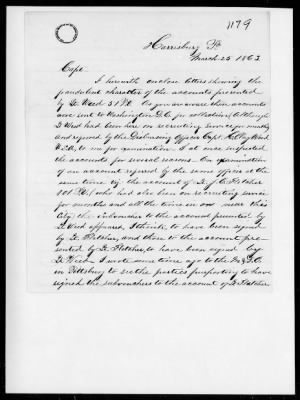 1179
Harrisburg Pa
March 25 1863
Capt.
I herewith enclose letters showing the
fraudulent character of the accounts presented
by Lt. Weed 51 P.V. As you are aware these accounts
were sent to Washington D.C. for collection, although
Lt Weed had been here on recruiting service for months,
and referred by the Disbursing Officer Capt.
U.S.A. to me for examination. I at once suspected
the accounts for several reasons. On examination
of an account referred by the same officer at the
same time viz: the account of Lt. J. C. Fletcher
101 P.V. (who had also been on recruiting service
for months and all the time in or near this
City) the subvoucher to the account presented by
Lt. Weed appeared, I think, to have been signed
by Lt. Fletcher, and those to the account pre-
sented by Lt. Fletcher to have been signed by
Lt. Weed. I wrote some time ago to the M.D.O.
in Pittsburg to see the parties purporting to have
signed the subvouchers to the account of Lt Fletcher